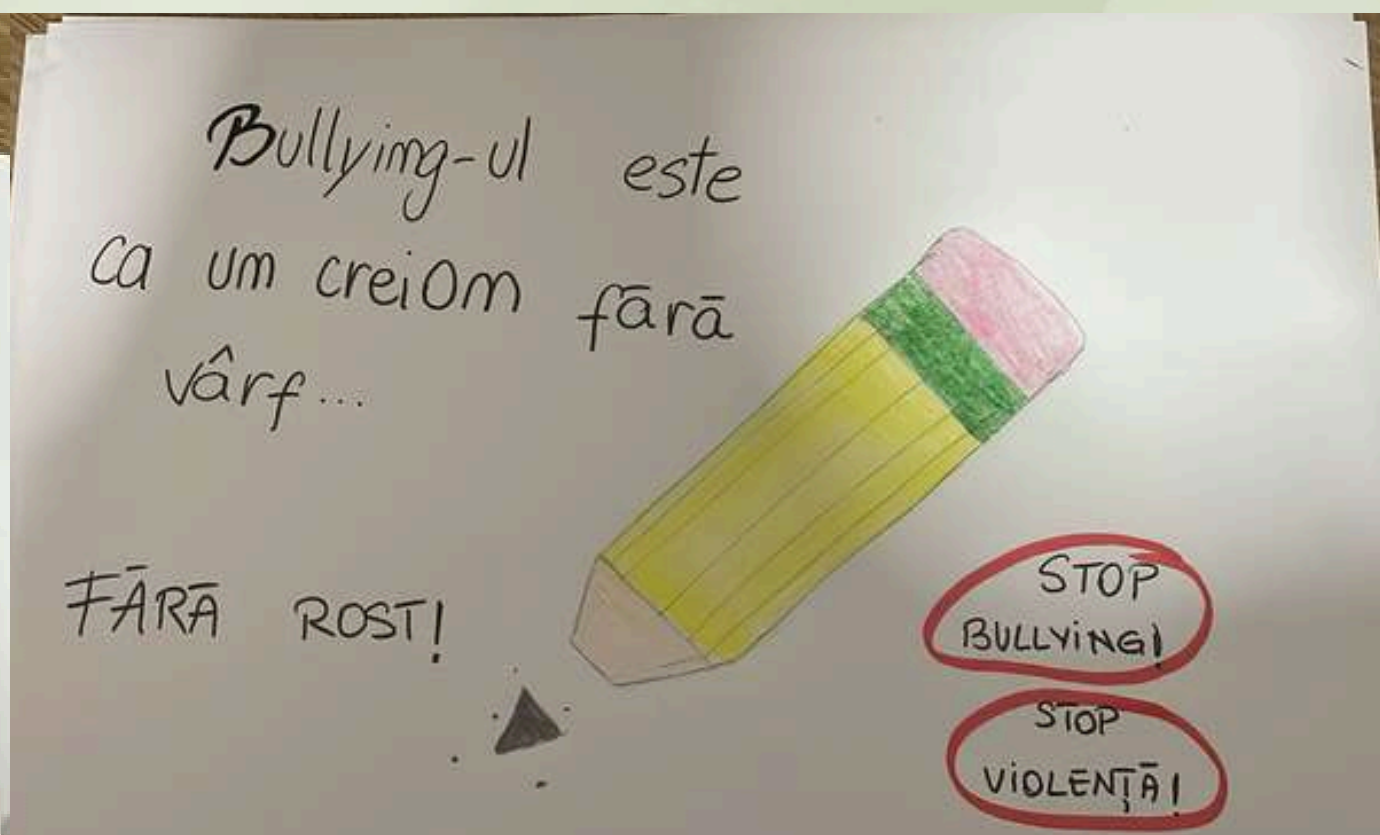 Bullying-ul este
ca un creiOn fără
vârf...
FĂRĂ ROST!
STOP
BULLYiNG!
STOP
ViOLENȚĂ!